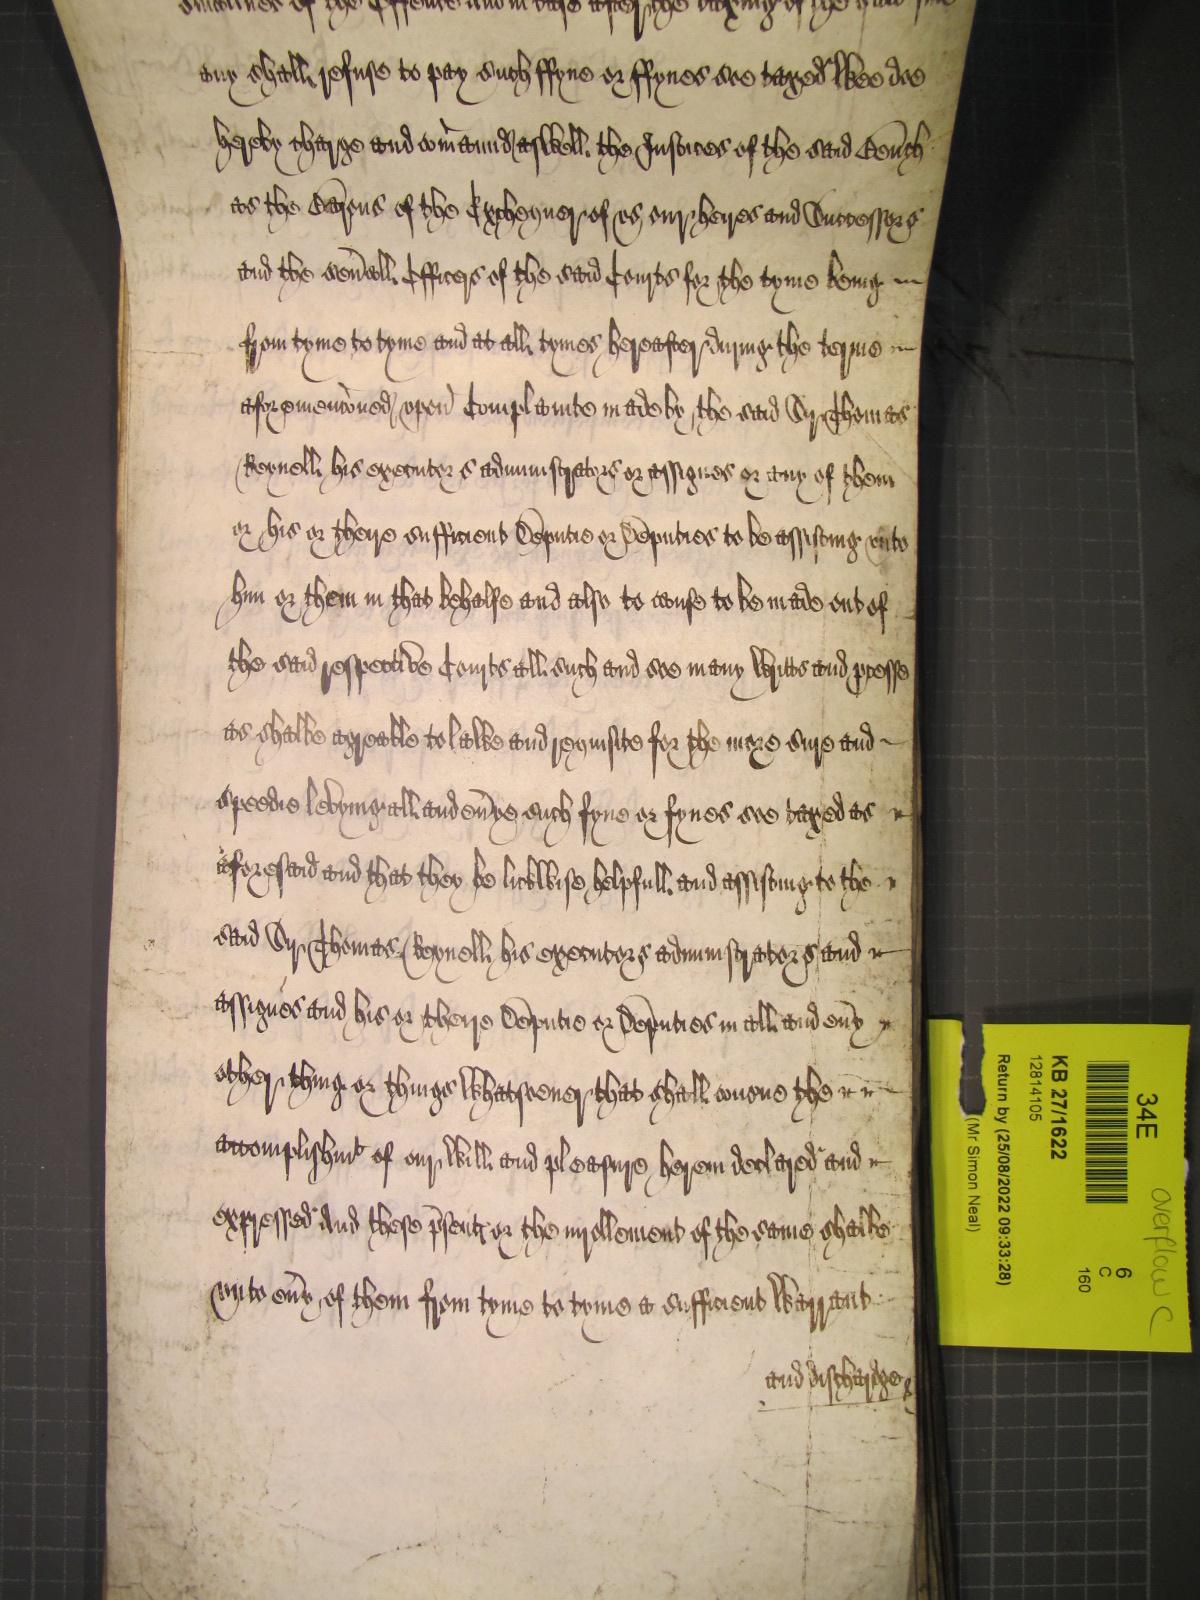 smalnes of the Offence and in case after the taxing of the said fine
any shall refuse to pay such ffyne or ffynes soe taxed Wee doe
hereby charge and com̄aund aswell the Justices of the said Bēnch
as the Barons of the Exchequer of us our heires and Successors
and the sev̄all Officers of the said Courts for the tyme being
from tyme to tyme and at all tymes hereafter during the terme
aforemenc̄oned upon Complainte made by the said Sr Thomas
Reynell his executors administrators or assignes or any of them
or his or theire sufficient Dēputie or Dēputies to be assisting unto
him or them in that behalfe and also to cause to be made out of
the said respective Courts all such and soe many Writts and pcesse
as shalbe agreable to lawe and requisite for the more sure and
speedie levying all and ev̄ye such fyne or fynes soe taxed as
aforesaid and that they be likewise helpfull and assisting to the
said Sr Thomas Reynell his executors administrators and
assignes and his or theire Dēputie or Dēputies in all and ev̄y
other thing or things whatsoever that shall conc̄ne the
accomplishmt of our Will and pleasure herein declared and
expressed And these p̄sents or the inrollement of the same shalbe
unto ev̄y of them from tyme to tyme a sufficient Warrant
and discharge
34E
Overflow C
6
C
160
KB 27/1622
12814105
Return by (25/08/2022 09:33:28)
(Mr Simon Neal)